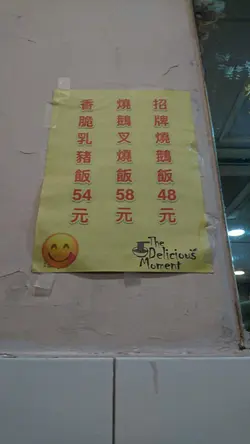 招牌燒鵝飯48元
燒鵝叉燒飯58元
香脆乳豬飯54元
The
Delicious
Moment